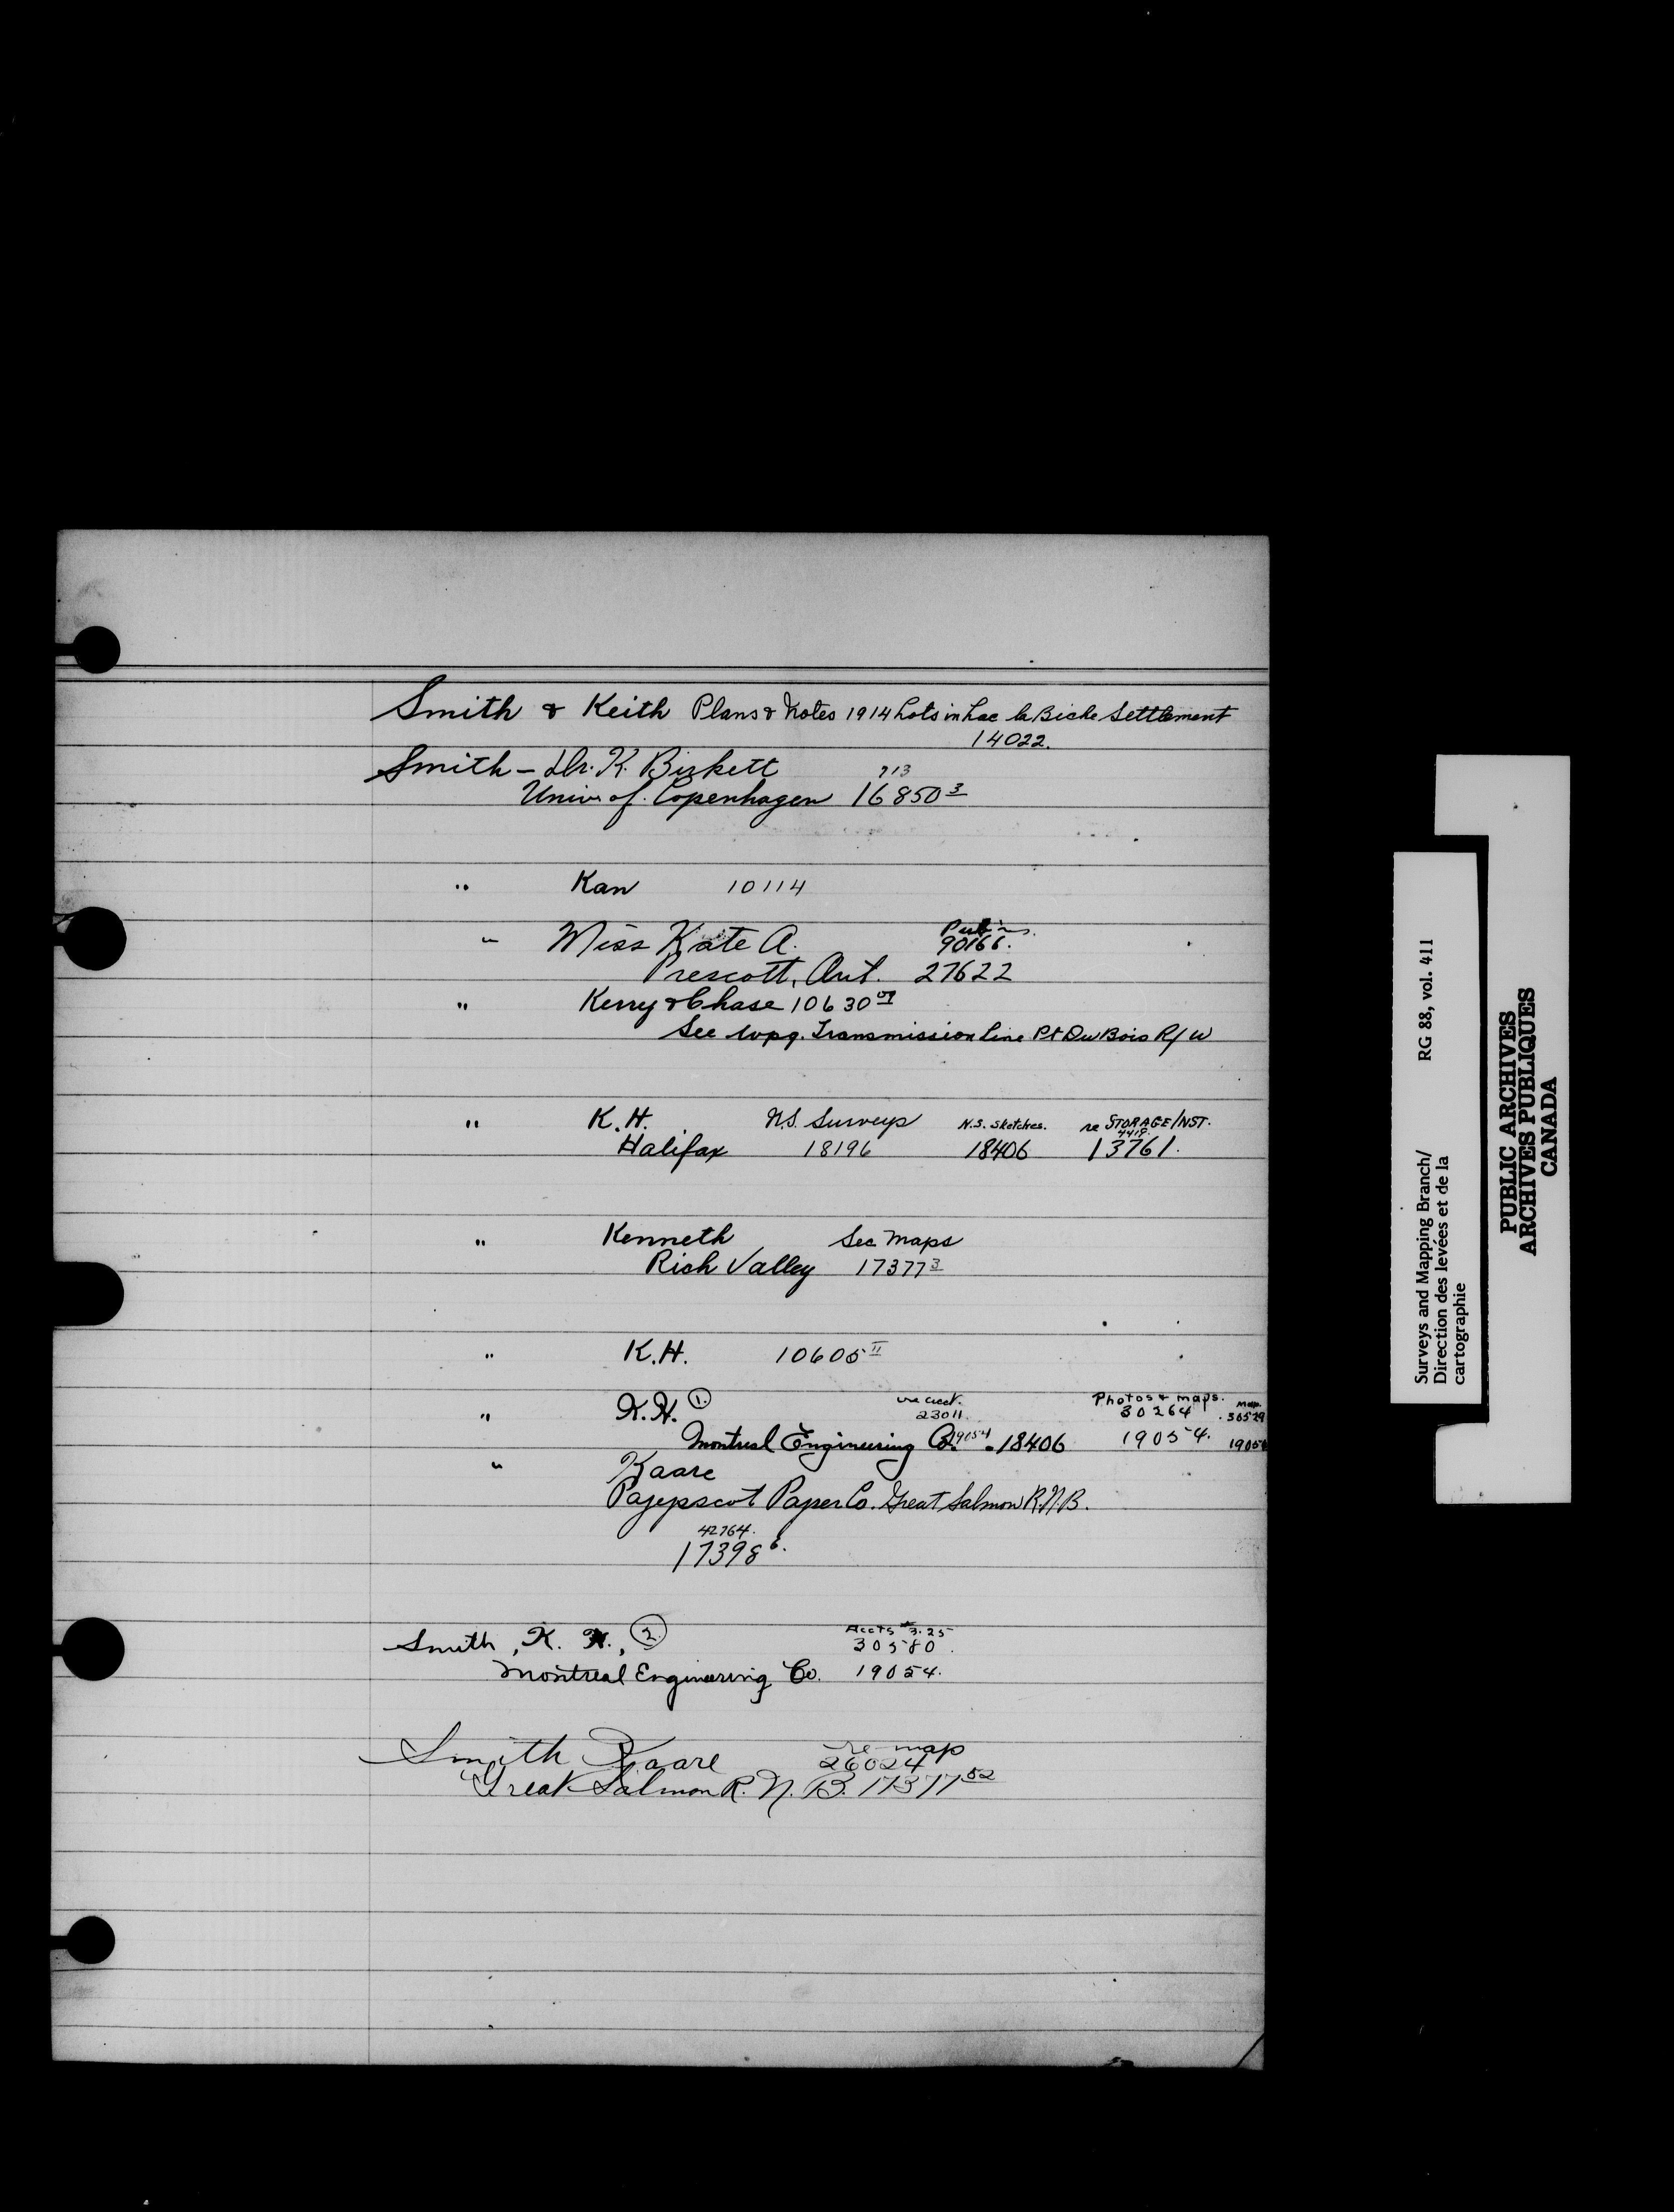 Smith & Keith Plans & Notes 1914 Lots in Lac la Biche Settlement
14022.
Smith - Dr. K. Birkett 713
Univ. of. Copenhagen 16850 3
" Kan 10114
" Miss Kate A. 90166.
Prescott, Ont. 27622
" Kerry & Chase 10630
See Wpg. Transmission Line Pt Du Bois R/W
" K.H. N.S. Surveys N.S. Sketches. re STORAGE/INST.
4419
Halifax 18196 18406 13761.
" Kenneth See Maps
Rich Valley 17377 3
" K.H. 10605 II
" K.H. 1. re acct. Photos & maps. Map.
23011. 30264 30529
Montreal Engineering Co. 19054 - 18406 19054. 1905
" Kaare
Pajepscot Paper Co. Great Salmon R. N.B.
42764.
17398 6.
Smith, K. H., 2. Accts # 3.25
30580.
Montreal Engineering Co. 19054.
Smith Kaare re map
26024
Great Salmon R. N. B. 17377 52
Surveys and Mapping Branch/ RG 88, vol. 411
Direction des levées et de la
cartographie
PUBLIC ARCHIVES
ARCHIVES PUBLIQUES
CANADA